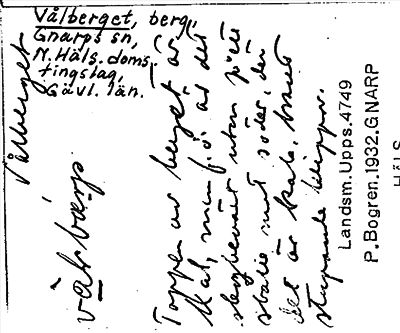 Vålberget, berg,
Gnarps sn,
N. Häls. doms.
tingslag,
Gävl. län.
Vålberget
Toppen av berget är
kal, men
skogbevuxet utom på ett
ställe mot söder, där
det är kala, brant
stupande klippor.
Landsm. Upps. 4749
P. Bogren. 1932. GNARP
HÄLS